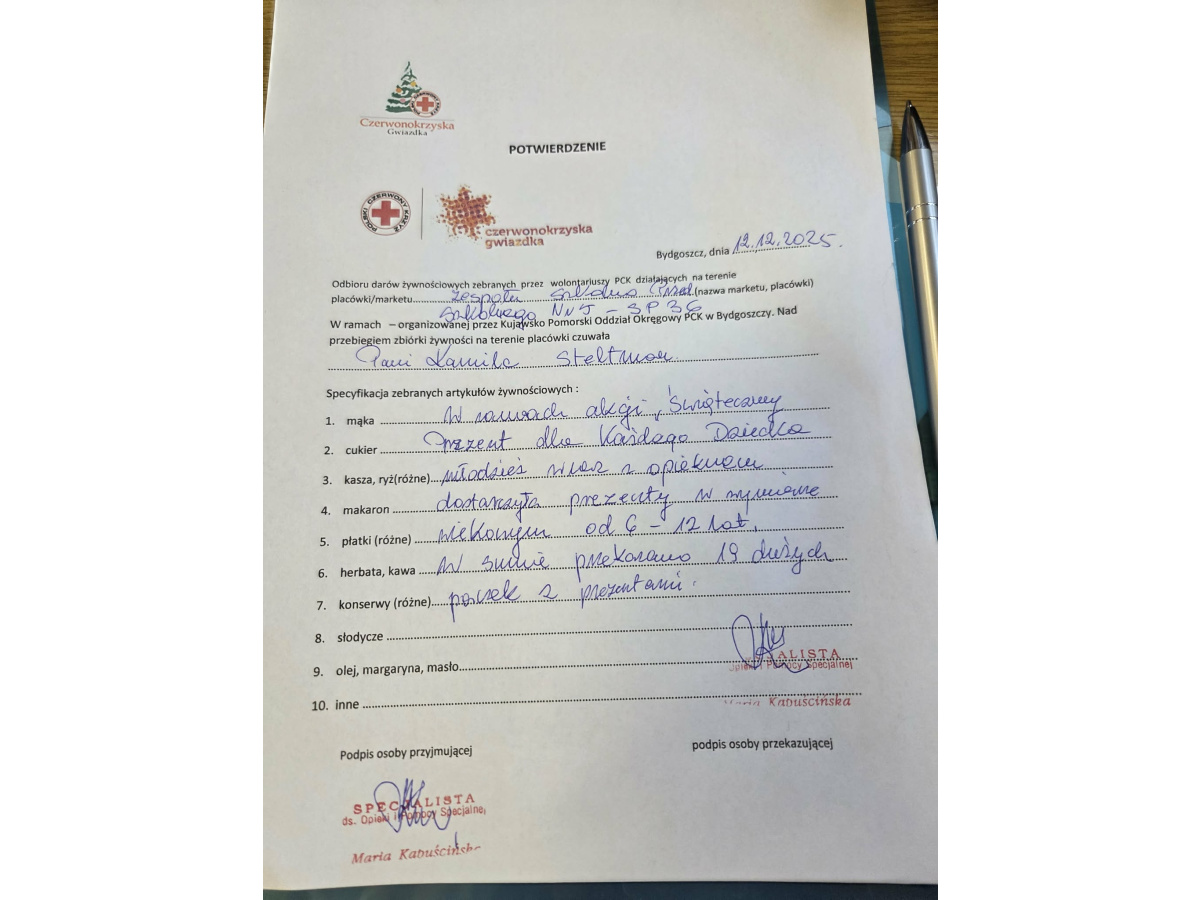 Czerwonokrzyska
Gwiazdka
POTWIERDZENIE
POLSKI CZERWONY KRZYŻ
czerwonokrzyska
gwiazdka
Bydgoszcz, dnia 12.12.2025.
Odbioru darów żywnościowych zebranych przez wolontariuszy PCK działających na terenie
placówki/marketu Zespołu Szkolno Przed (nazwa marketu, placówki)
szkolnego Nr 5 - SP 36
W ramach – organizowanej przez Kujawsko Pomorski Oddział Okręgowy PCK w Bydgoszczy. Nad
przebiegiem zbiórki żywności na terenie placówki czuwała
Pani Kamila Steltman
Specyfikacja zebranych artykułów żywnościowych :
1. mąka W ramach akcji „Świąteczny
2. cukier Prezent dla Każdego Dziecka
3. kasza, ryż(różne) młodzież wraz z opiekunem
4. makaron dostarczyła prezenty w wymiarze
5. płatki (różne) wiekowym od 6 - 12 lat.
6. herbata, kawa W sumie przekazano 19 dużych
7. konserwy (różne) paczek z prezentami.
8. słodycze
9. olej, margaryna, masło
10. inne
SPECJALISTA
ds. Opieki i Pomocy Specjalnej
Maria Kapuścińska
Podpis osoby przyjmującej
podpis osoby przekazującej
SPECJALISTA
ds. Opieki i Pomocy Specjalnej
Maria Kapuścińska